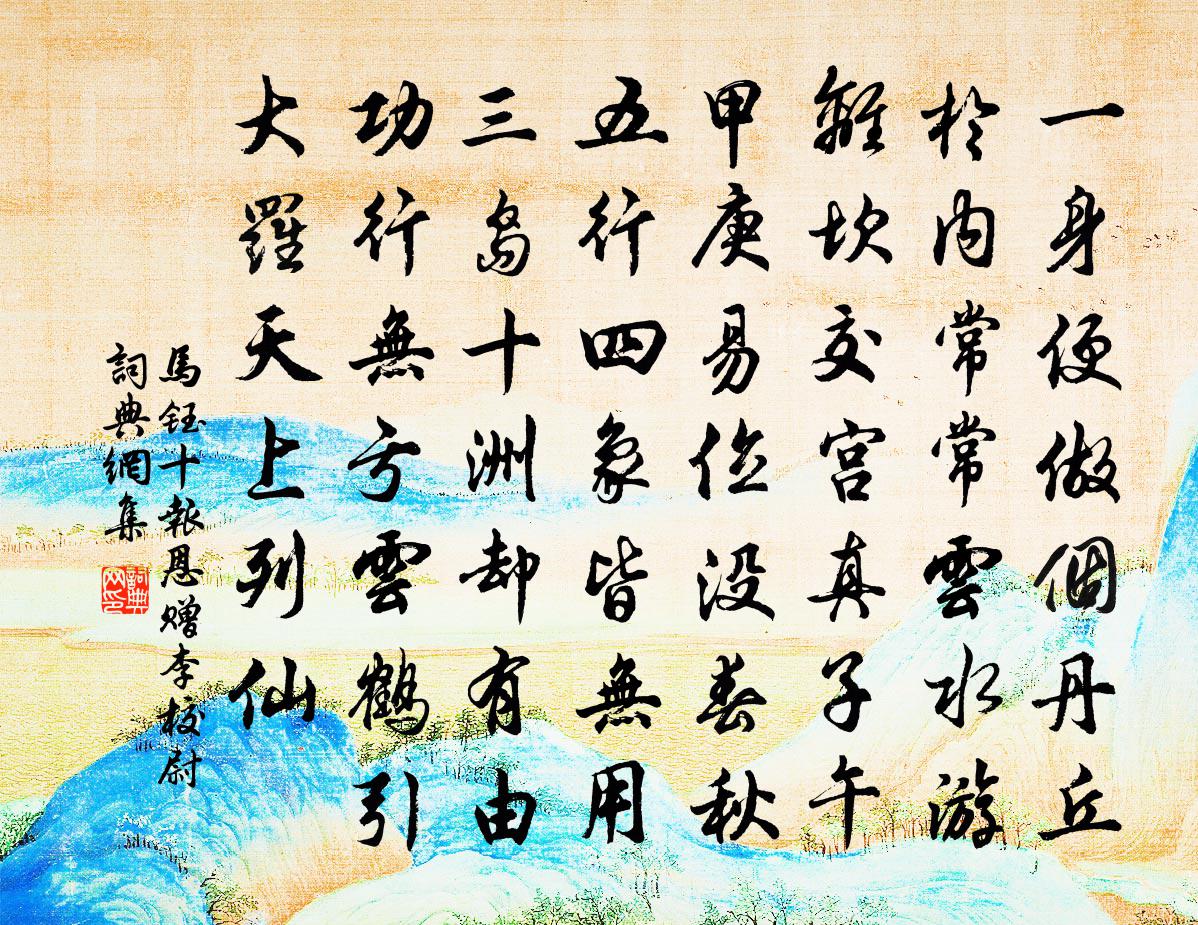 一身便做個丹丘
於內常常雲水游
離坎交宮真子午
甲庚易位没春秋
五行四象皆無用
三島十洲却有由
功行無亏雲鶴引
大羅天上列仙
馬鈺十報恩赠李校尉
詞典網集
詞典网印